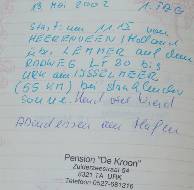 13 MAI 2002 1. TAG
Start um 11.15 von
HEERENVEEN / Holland
über LEMMER auf dem
RADWEG LF 20 b's
URK am IJSSELMEER
(55 KM) bei strahlender
Sonne. Hund und Wind
Abendessen am Hafen
Pension "De Kroon"
Zuiderzeestraat 54
8321 TA URK
Telefoon 0527-681216